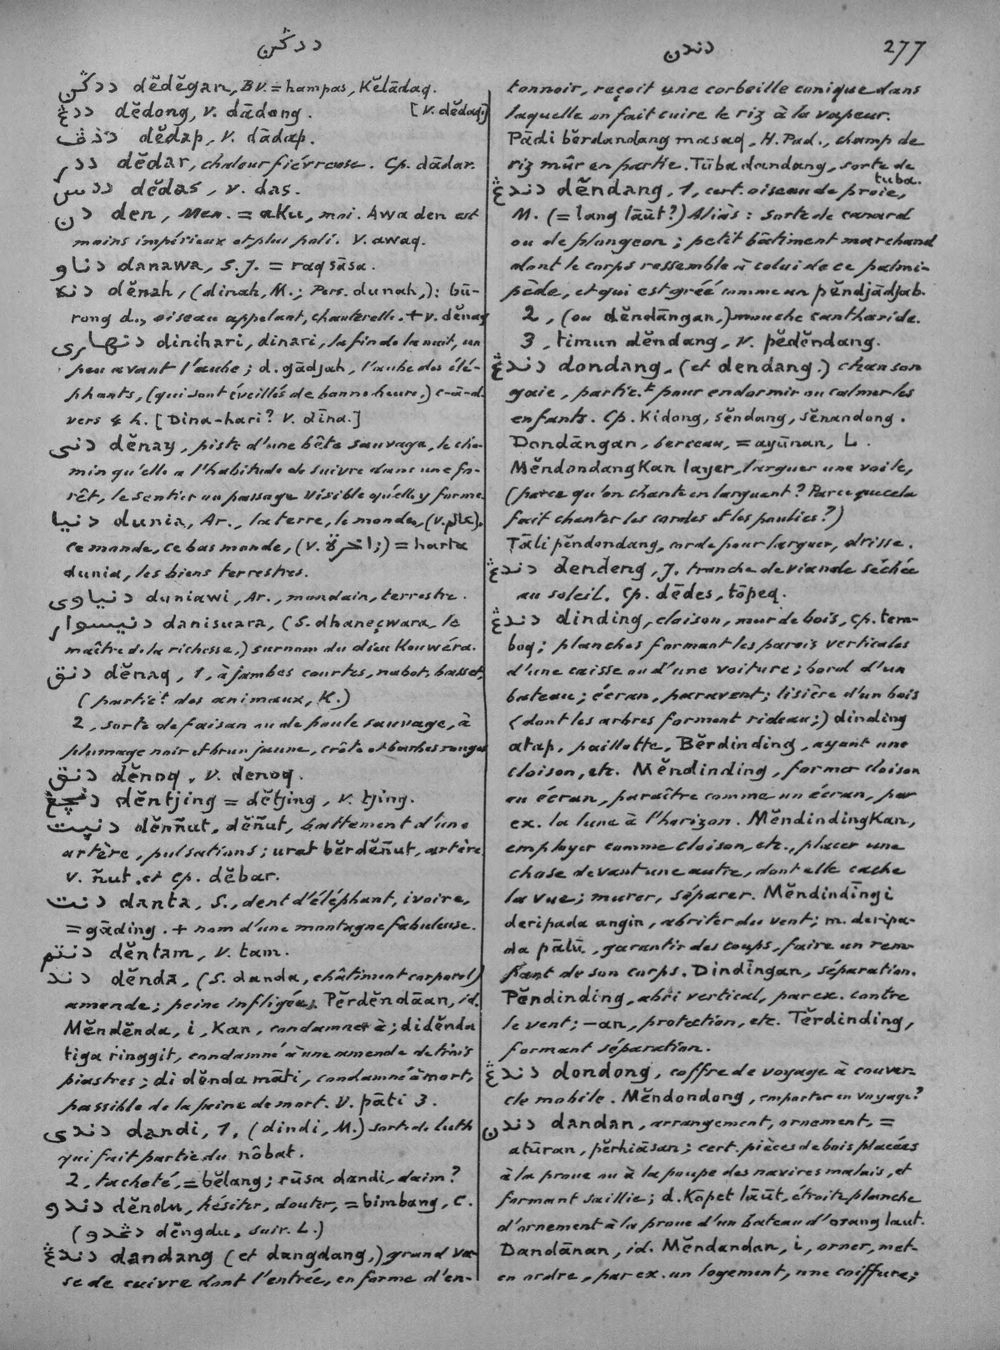 ددڬن
دندن
277
ددڬن dĕdĕgan, BV. = hampas, Kĕlādaq.
ددڠ dĕdong, v. dādong. [v. dĕdaq]
ددڤ dĕdap, v. dādap.
ددر dĕdar, chaleur fiévreuse. Cp. dādar.
ددس dĕdas, v. das.
دن den, Men. = aku, moi. Awa den est
moins impérieux et plus poli. v. awaq.
دناو danawa, S.J. = raqsāsa.
دنه dĕnah, (dinah, M.; Pers. dunah,): bū-
rong d., oiseau appelant, chanterelle. + v. dĕnaq
دنهاري dinihari, dinari, la fin de la nuit, un
peu avant l'aube; d. gādjah, l'aube des élé-
phants, (qui sont éveillés de bonne heure,) c-à-d.
vers 4 h. [Dina-hari? v. dīna.]
دني dĕnay, piste d'une bête sauvage, le che-
min qu'elle a l'habitude de suivre dans une fo-
rêt, le sentier ou passage visible qu'elle y forme.
دنيا dunia, Ar., la terre, le monde, (v. عالم),
ce monde, ce bas monde, (v. اخرة) = harta
dunia, les biens terrestres.
دنياوي duniawi, Ar., mondain, terrestre.
دنيسوار danisuara, (S. dhaneçwara, le
maître de la richesse,) surnom du dieu Kouwéra.
دنق dĕnaq, 1, à jambes courtes, nabot, basset,
(partic.t des animaux, K.)
2, sorte de faisan ou de poule sauvage, à
plumage noir et brun jaune, crête et barbes rouges
دنق dĕnoq, v. denoq.
دنچڠ dĕntjing = dĕtjing, v. tjing.
دنيت dĕnñut, dĕñut, battement d'une
artère, pulsations; urat bĕrdĕñut, artère
v. ñut, et cp. dĕbar.
دنت danta, S., dent d'éléphant, ivoire,
= gāding. + nom d'une montagne fabuleuse.
دنتم dĕntam, v. tam.
دند dĕnda, (S. danda, châtiment corporel)
amende; peine infligée. Pĕrdĕndāan, id.
Mĕndĕnda, i, Kan, condamner à; didĕnda
tiga ringgit, condamné à une amende de trois
piastres; di dĕnda māti, condamné à mort,
passible de la peine de mort. v. pāti 3.
دندي dandi, 1, (dindi, M.) sorte de luth
qui fait partie du nôbat.
2, tacheté, = bĕlang; rūsa dandi, daim?
دندو dĕndu, hésiter, douter, = bimbang, C.
(دڠدو dĕngdu, suiv. L.)
دندڠ dandang (et dangdang,) grand va-
se de cuivre dont l'entrée, en forme d'en-
tonnoir, reçoit une corbeille conique dans
laquelle on fait cuire le riz à la vapeur.
Pādi bĕrdandang masaq, H. Pad., champ de
riz mûr en partie. Tūba dandang, sorte de
tuba.
دندڠ dĕndang, 1, cert. oiseau de proie,
M. (= lang lāūt?) Aliàs: sorte de canard
ou de plongeon; petit bâtiment marchand
dont le corps ressemble à celui de ce palmi-
pède, et qui est gréé comme un pĕndjādjab.
2, (ou dĕndāngan,) mouche cantharide.
3, timun dĕndang, v. pĕdĕndang.
دندڠ dondang, (et dendang.) chanson
gaie, partic.t pour endormir ou calmer les
enfants. Cp. Kidong, sĕndang, sĕnandong.
Dondāngan, berceau, = ayūnan, L.
MĕndondangKan layer, larguer une voile,
(parce qu'on chante en larguant? Parce que cela
fait chanter les cordes et les poulies?)
Tāli pĕndondang, corde pour larguer, drisse.
دندڠ dendeng, J. tranche de viande séchée
au soleil. Cp. dēdes, tōpeq.
دندڠ dinding, cloison, mur de bois, cp. tem-
boq; planches formant les parois verticales
d'une caisse ou d'une voiture; bord d'un
bateau; écran, paravent; lisière d'un bois
(dont les arbres forment rideau;) dinding
atap, paillotte. Bĕrdinding, ayant une
cloison, etc. Mĕndinding, former cloison
ou écran, paraître comme un écran, par
ex. la lune à l'horizon. MĕndindingKan,
employer comme cloison, etc., placer une
chose devant une autre, dont elle cache
la vue; murer, séparer. Mĕndindīngi
deripada angin, abriter du vent; m. deripa-
da pālū, garantir des coups, faire un rem-
part de son corps. Dindīngan, séparation.
Pĕndinding, abri vertical, par ex. contre
le vent; —an, protection, etc. Tĕrdinding,
formant séparation.
دندڠ dondong, coffre de voyage à couver-
cle mobile. Mĕndondong, emporter en voyage?
دندن dandan, arrangement, ornement, =
atūran, pĕrhiāsan; cert. pièces de bois placées
à la proue ou à la poupe des navires malais, et
formant saillie; d. Kopet lāūt, étroite planche
d'ornement à la proue d'un bateau d'orang laut.
Dandānan, id. Mĕndandan, i, orner, met-
en ordre, par ex. un logement, une coiffure;